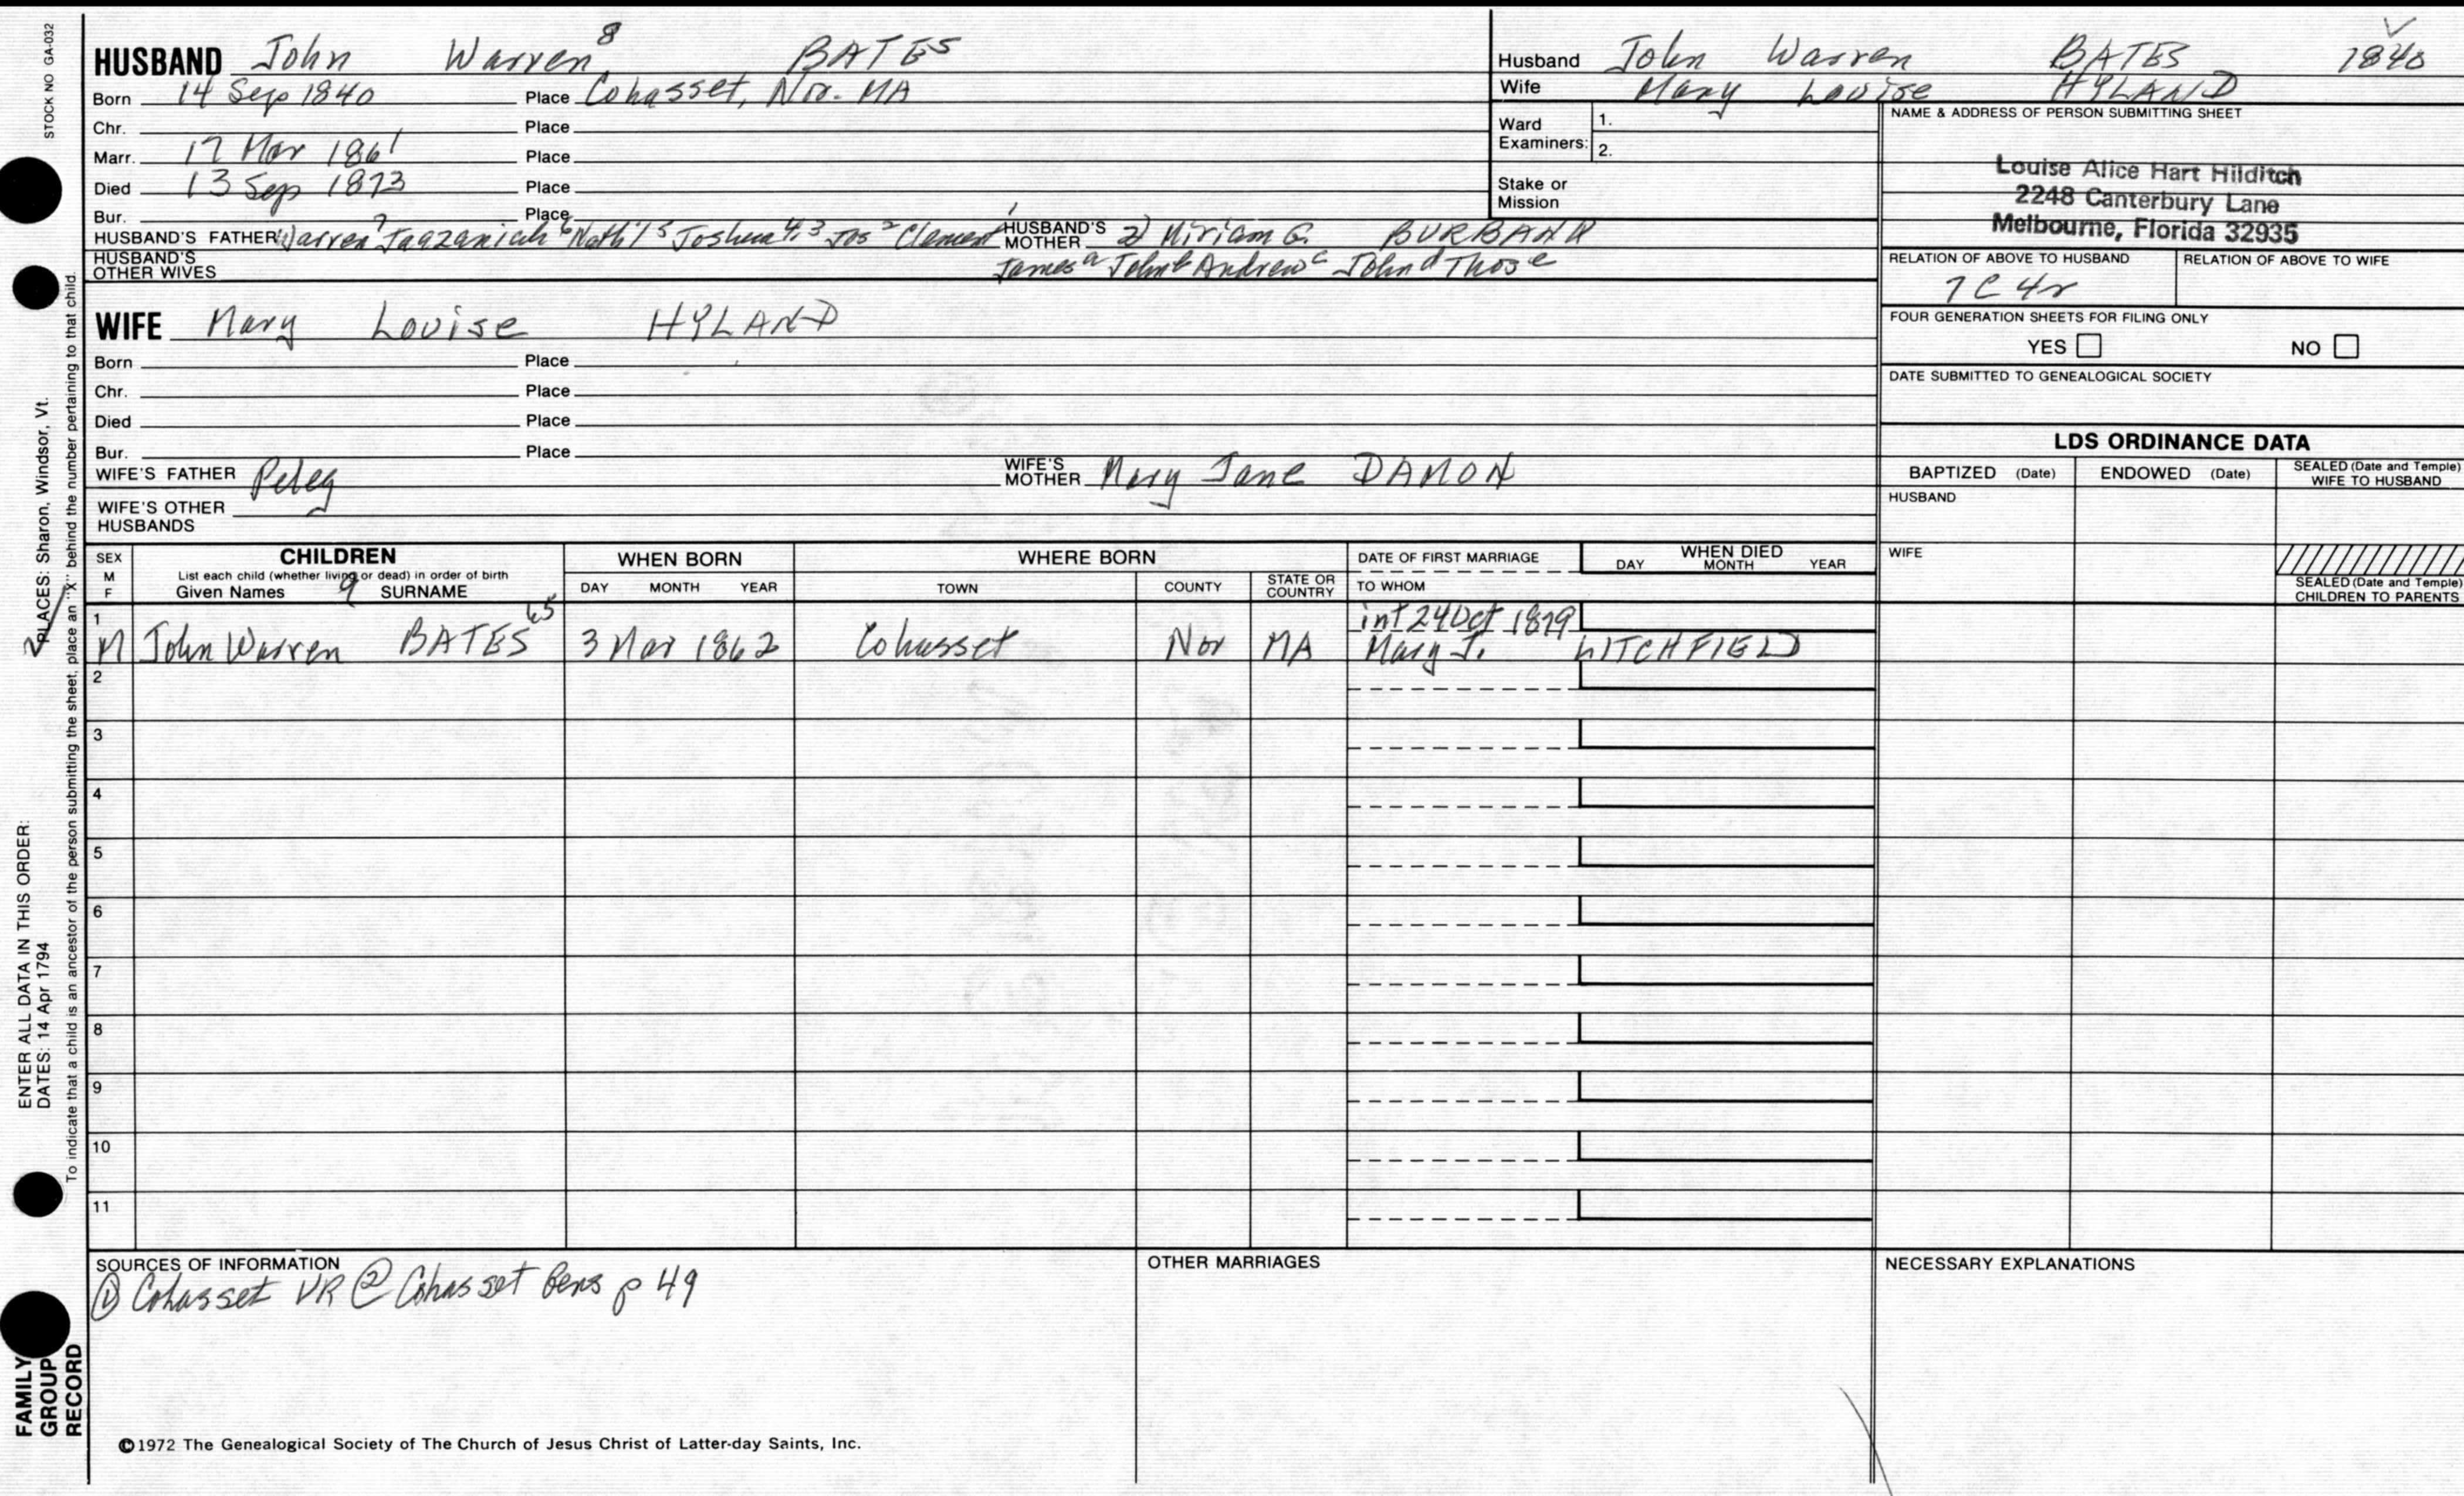 STOCK NO GA-032
HUSBAND John Warren 8 BATES
Born 14 Sep 1840 Place Cohasset, Nor. MA
Chr. Place
Marr. 17 Mar 1861 Place
Died 13 Sep 1873 Place
Bur. Place
HUSBAND'S FATHER Warren 7 Jaazaniah 6 Nath'l 5 Joshua 4,3 Jos 2 Clement 1 HUSBAND'S MOTHER 2) Miriam G. BURBANK
HUSBAND'S OTHER WIVES James a John b Andrew c John d Thos e
Husband John Warren BATES 1840
Wife Mary Louise HYLAND
Ward Examiners: 1.
2.
Stake or Mission
NAME & ADDRESS OF PERSON SUBMITTING SHEET
Louise Alice Hart Hilditch
2248 Canterbury Lane
Melbourne, Florida 32935
RELATION OF ABOVE TO HUSBAND RELATION OF ABOVE TO WIFE
7C 4r
FOUR GENERATION SHEETS FOR FILING ONLY
YES NO
DATE SUBMITTED TO GENEALOGICAL SOCIETY
WIFE Mary Louise HYLAND
Born Place
Chr. Place
Died Place
Bur. Place
WIFE'S FATHER Peleg WIFE'S MOTHER Mary Jane DAMON
WIFE'S OTHER HUSBANDS
LDS ORDINANCE DATA
BAPTIZED (Date) ENDOWED (Date) SEALED (Date and Temple) WIFE TO HUSBAND
HUSBAND
WIFE
SEALED (Date and Temple) CHILDREN TO PARENTS
SEX M F CHILDREN WHEN BORN WHERE BORN DATE OF FIRST MARRIAGE WHEN DIED
List each child (whether living or dead) in order of birth
Given Names 9 SURNAME DAY MONTH YEAR TOWN COUNTY STATE OR COUNTRY TO WHOM DAY MONTH YEAR
1 int 24 Oct 1879
M John Warren BATES 65 3 Mar 1862 Cohasset Nor MA Mary J. LITCHFIELD
2
3
4
5
6
7
8
9
10
11
SOURCES OF INFORMATION OTHER MARRIAGES NECESSARY EXPLANATIONS
① Cohasset VR ② Cohasset Gens p 49
©1972 The Genealogical Society of The Church of Jesus Christ of Latter-day Saints, Inc.
ENTER ALL DATA IN THIS ORDER:
DATES: 14 Apr 1794 PLACES: Sharon, Windsor, Vt.
To indicate that a child is an ancestor of the person submitting the sheet, place an "X" behind the number pertaining to that child.
FAMILY GROUP RECORD